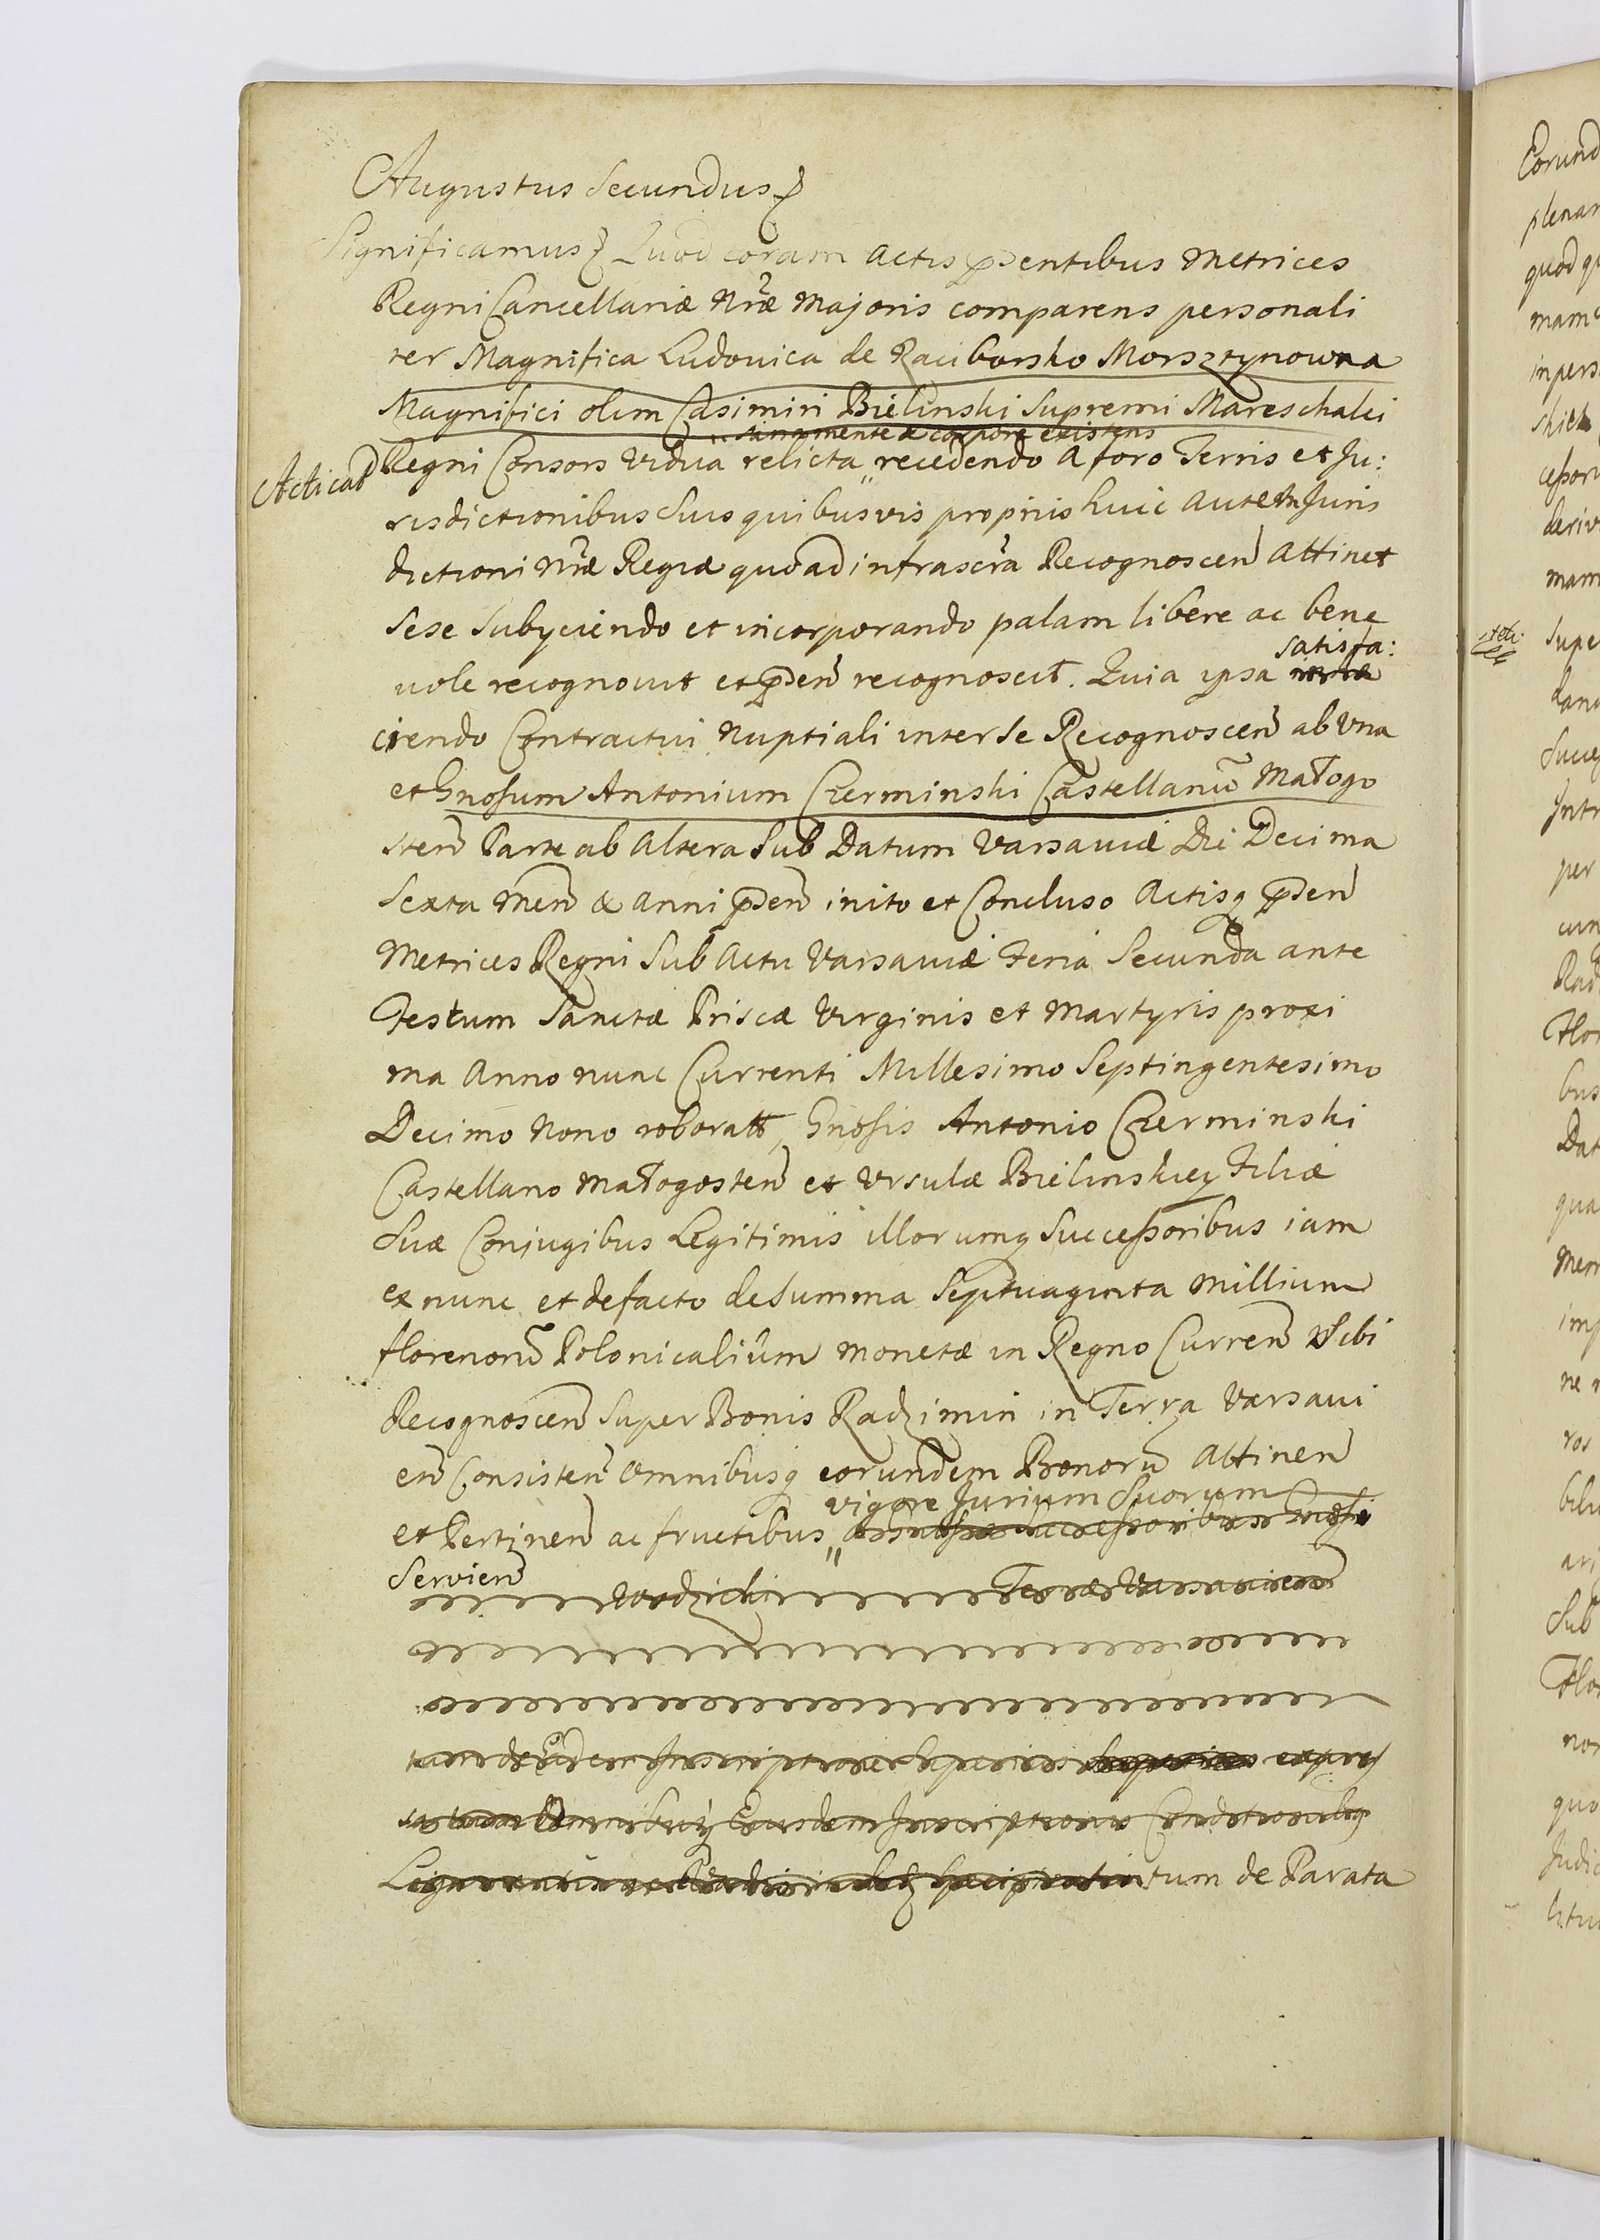 Augustus Secundus
Significamus Quod coram Actis pñtibus Metrices
Regni Cancellariæ Nr̃æ Majoris comparens personali
ter Magnifica Ludovica de Raciborsko Morsztynowna
Magnifici olim Casimiri Bielinski Supremi Mareschalci
sana mente & corpore existens
Acticat̃
Regni Consors Vidua relicta recedendo a foro Terris et Ju:
risdictionibus Suis quibusvis proprijs huic autem Juris
dictioni Nr̃æ Regiæ quoad infrascr̃a Recognoscen̄ attinet
Sese Subyciendo et incorporando palam libere ac bene
satisfa:
vole recognovit et p̄den̄ recognoscit. Quia ipsa
ciendo Contractui Nuptiali inter Se Recognoscen̄ ab Vna
et Gnosum Antonium Czerminski Castellanū Małogo
sten̄ Parte ab Altera Sub Datum Varsaviæ Die Decima
Sexta Men̄ & Anni p̄den̄ inito et Concluso Actisq p̄den̄
Metrices Regni Sub Actu Varsaviæ Feria Secunda ante
Festum Sanctæ Priscæ Virginis et Martyris proxi
ma Anno nunc Currenti Millesimo Septingentesimo
Decimo Nono roborat̃, Gnosis Antonio Czerminski
Castellano Małogosten̄ et Vrsulæ Bielinskiey Filiæ
Suæ Conjugibus Legitimis illorumq Successoribus iam
ex nunc et de facto de Summa Septuaginta Millium
florenorū Polonicalium monetæ in Regno Curren̄ Sibi
Recognoscen̄ Super Bonis Radzimin in Terra Varsavi
en̄ Consisten̄ Omnibusq eorundem Bonorū Attinen̄
vigore Jurium Suorum
et Pertinen̄ ac fructibus
Servien̄
Wodzicki Terræ Varsavien̄
tum de Parata
Corund
plenar
quod q
mam
in pers
skiet
cessor
deriv
mam
Supe
Succes
Intr
per
cum
Rad
Flor
bus
Dat
qua
imp
ne
ros
Sub
Flor
non
quo
Judic